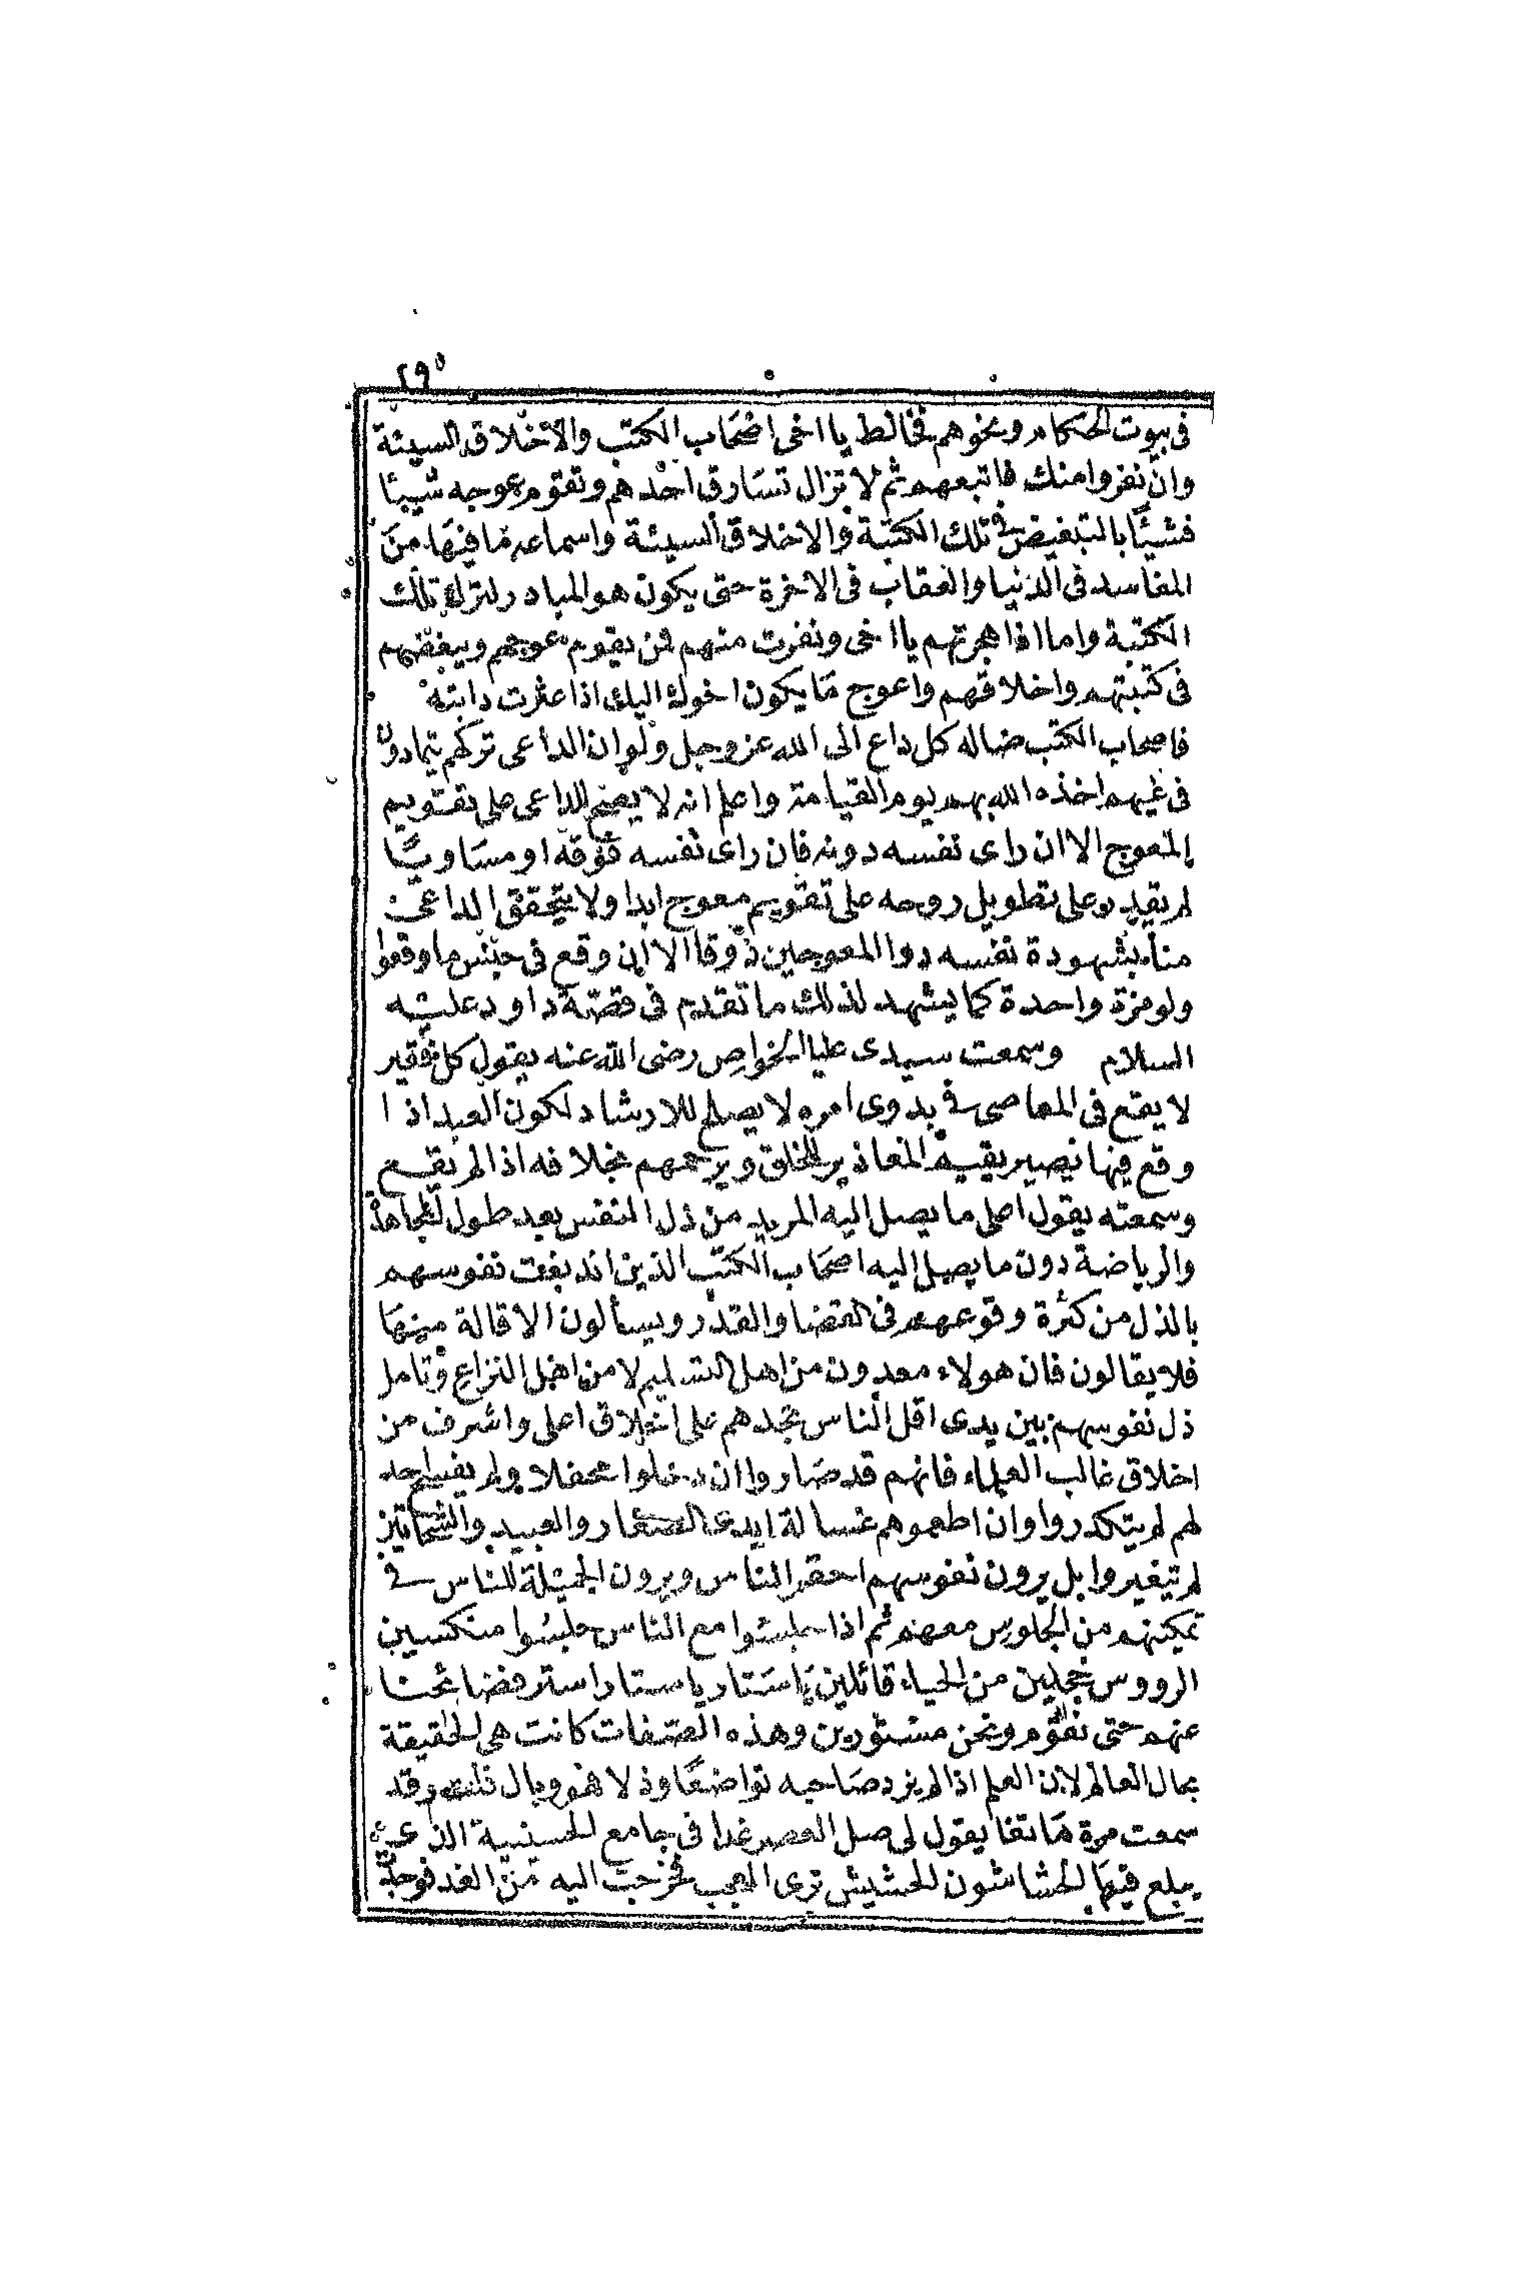 ٢٩٥
فى بيوت الحكام ونحوهم فخالط يا اخى اصحاب الكتب والاخلاق السيئة
وان نفروا منك فاتبعهم ثم لا تزال تسارق احدهم وتقوم عوجه شيئا
فشيئا بالتبغيض فى تلك الكتبة والاخلاق السيئة واسماعه ما فيها من
المفاسد فى الدنيا والعقاب فى الاخرة حتى يكون هو المبادر لترك تلك
الكتبة واما اذا هجرتهم يا اخى ونفرت منهم فمن يقوم عوجهم ويبغضهم
فى كتبتهم واخلاقهم واعوج ما يكون اخوك اليك اذا عثرت دابته
فاصحاب الكتب ضاله كل داع الى الله عز وجل ولو ان الداعى تركهم يتمادون
فى غيهم اخذه الله بهم يوم القيامة واعلم انه لا يصح للداعى على تقويم
المعوج الا ان راى نفسه دونه فان راى نفسه فوقه او مساويا
لم يقدر على تطويل روحه على تقويم معوج ابدا ولا يتحقق الداعى
منا بشهودة نفسه دوا المعوجين ذوقا الا ان وقع فى جنس ما وقعوا
ولو مرة واحدة كما يشهد لذلك ما تقدم فى قصة داود عليه
السلام وسمعت سيدى عليا الخواص رضى الله عنه يقول كل فقير
لا يقع فى المعاصى فى بدوى امره لا يصلح للارشاد لكون العبد اذا
وقع فيها يصير يقيم المعاذير للخلق ويرحمهم بخلافه اذا لم يقع
وسمعته يقول اعلى ما يصل اليه المريد من ذل النفس بعد طول المجاهدة
والرياضة دون ما يصل اليه اصحاب الكتب الذين اندبغت نفوسهم
بالذل من كثرة وقوعهم فى القضا والقدر ويسألون الاقالة منها
فلا يقالون فان هولاء معدون من اهل التسليم لا من اهل النزاع وتامل
ذل نفوسهم بين يدى اقل الناس تجدهم على اخلاق اعلى واشرف من
اخلاق غالب العلماء فانهم قد صاروا ان دخلوا محفلا ولم يفسح احد
لهم لم يتكدروا وان اطعموهم غسالة ايدى الصغار والعبيد والشحاتين
لم يتغيروا بل يرون نفوسهم احقر الناس ويرون الجميلة للناس فى
تمكينهم من الجلوس معهم ثم اذا جلسوا مع الناس جلسوا منكسين
الرووس خجلين من الحياء قائلين يا ستار يا ستار استر فضائحنا
عنهم حتى نقوم ونحن مستورين وهذه الصفات كانت هى الحقيقة
بحال العالم لان العلم اذا لم يزد صاحبه تواضعا وذلا فهو وبال عليه وقد
سمعت مرة هاتفا يقول لى صل العصر غدا فى جامع الحسينية الذى
يبلع فيها الحشاشون الحشيش ترى العجب فخرجت اليه من الغد فوجدت